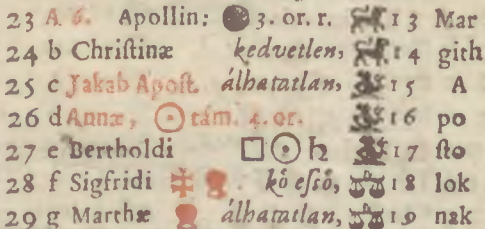 23 A 6. Apollin: 3. or. r. 13 Mar
24 b Chriſtinæ kedvetlen, 14 gith
25 c Jakab Apoſt. álhatatlan, 15 A
26 d Annæ, ☉ tám. 4. or. 16 po
27 e Bertholdi □ ☉ ♄ 17 ſto
28 f Sigfridi kö eſsö, 18 lok
29 g Marthæ álhatatlan, 19 nak